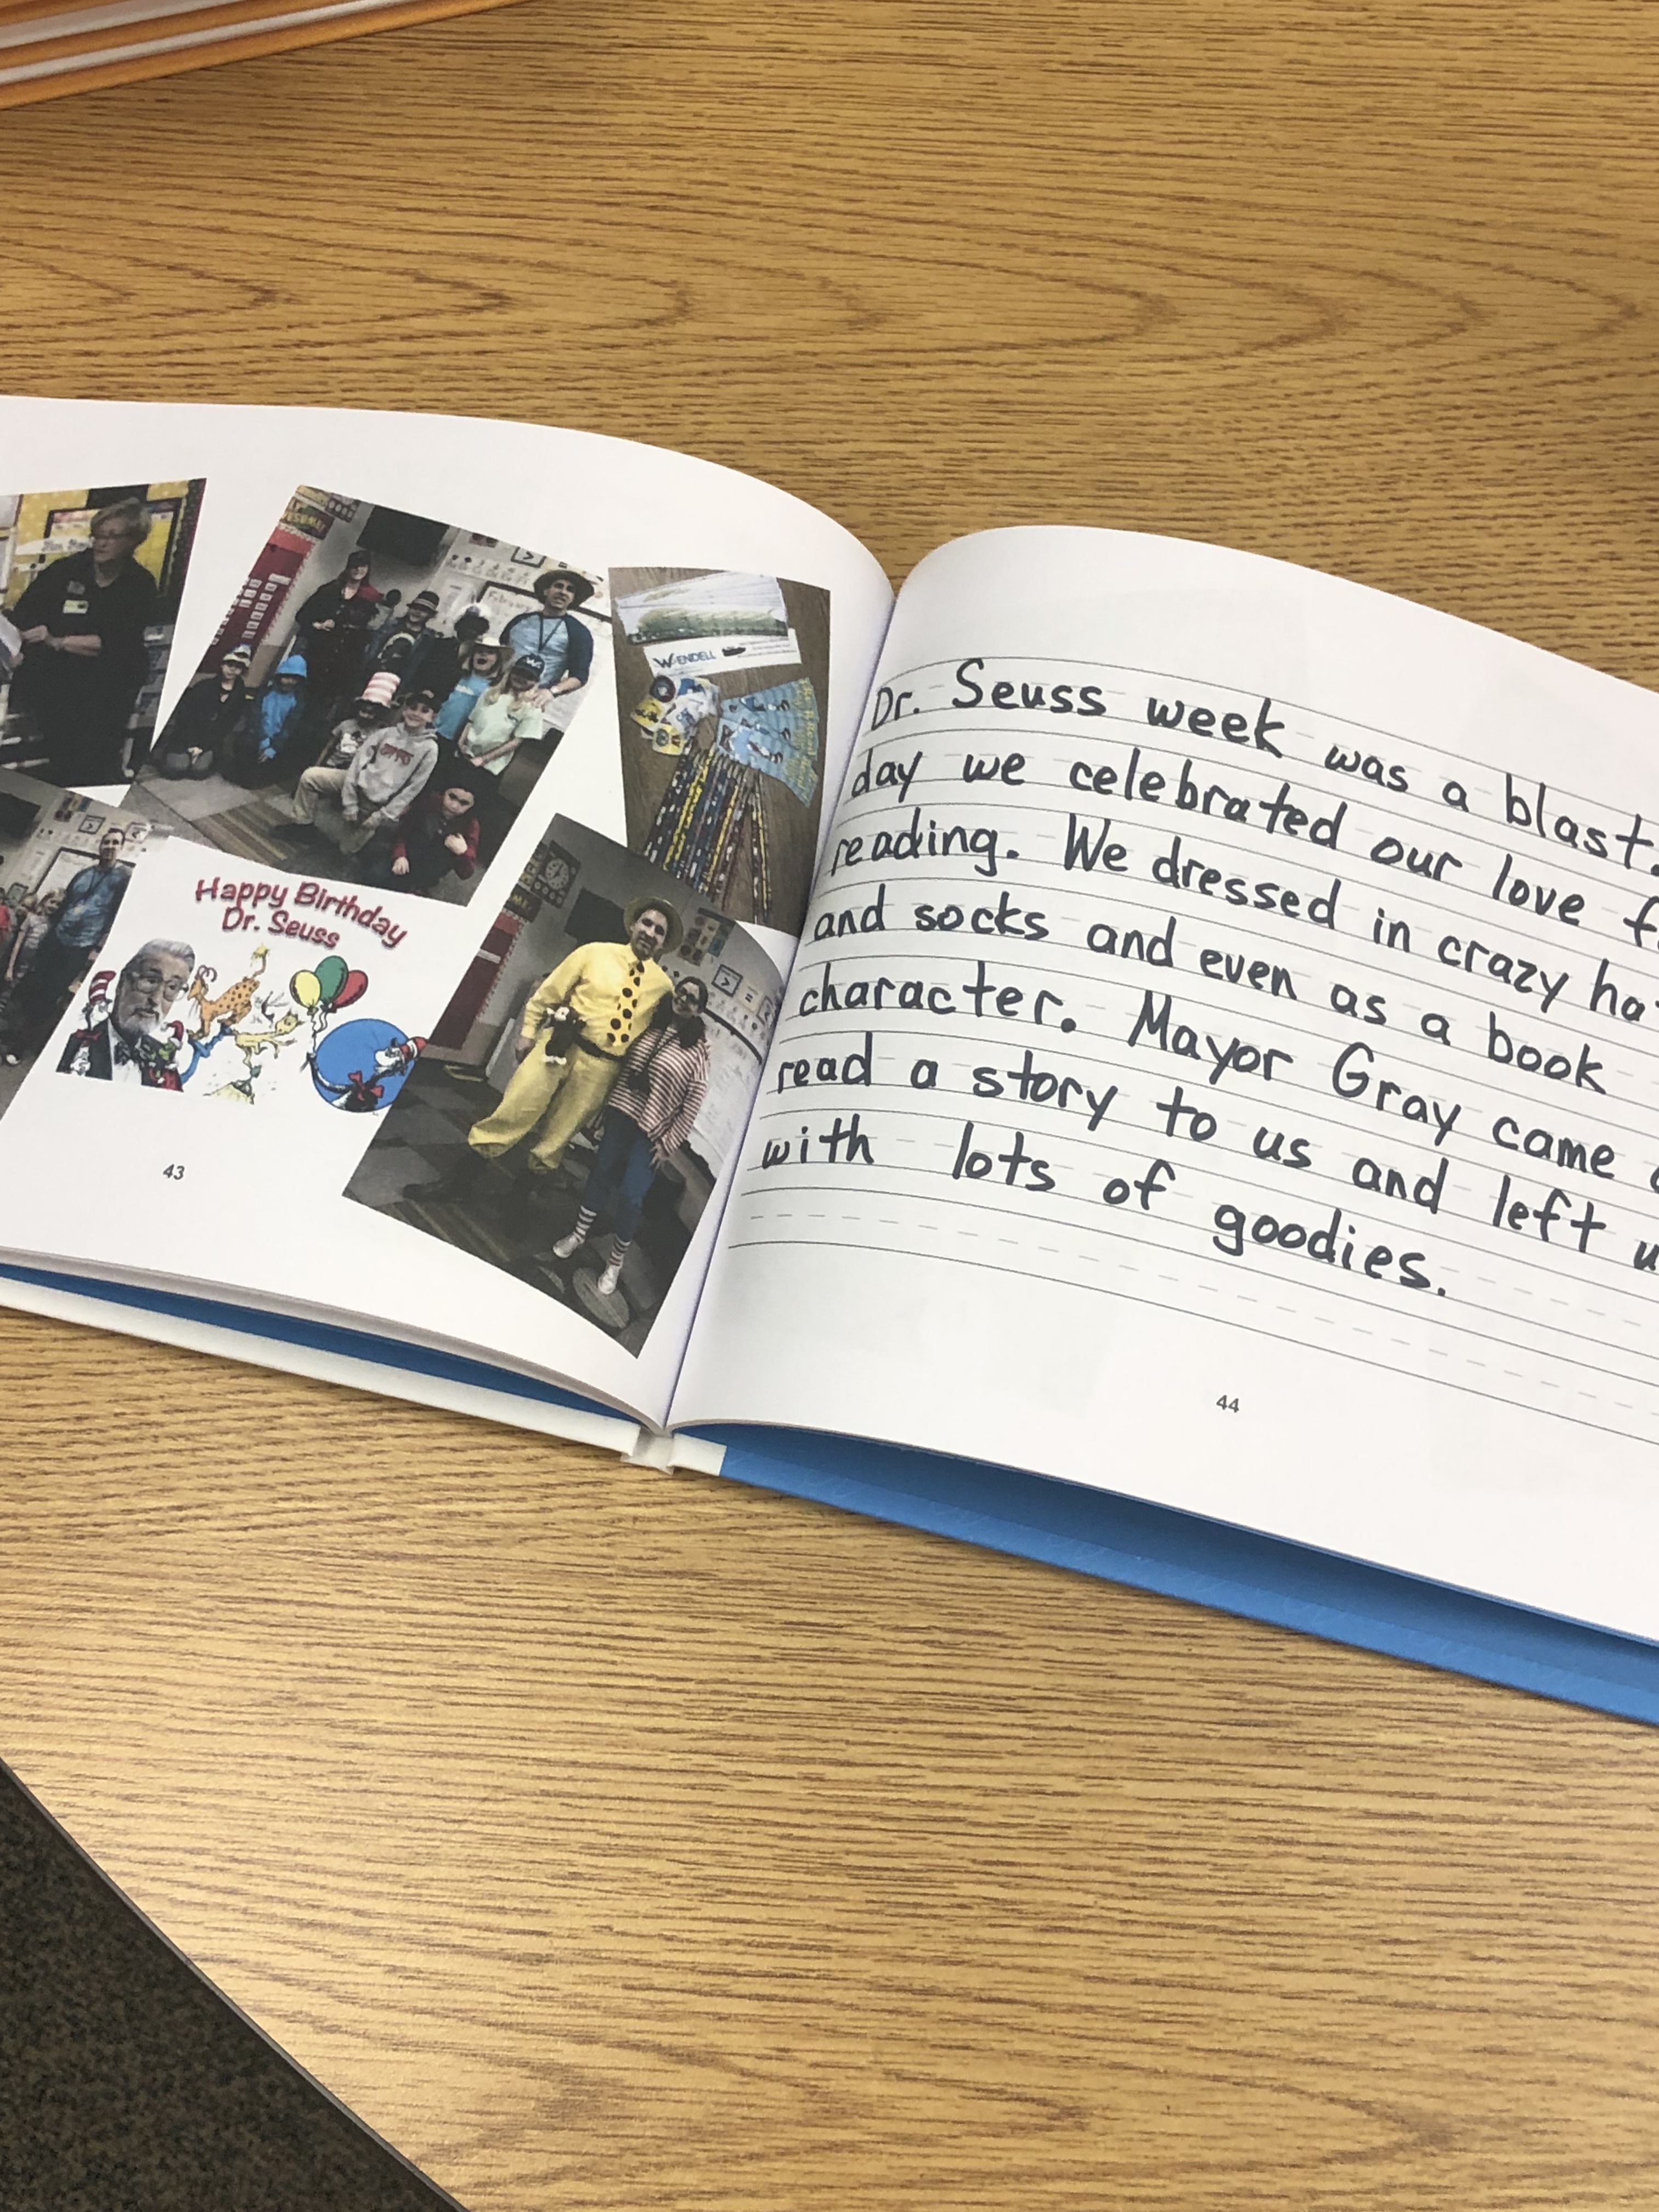 Happy Birthday
Dr. Seuss
WENDELL
43
Dr. Seuss week was a blast.
day we celebrated our love f
reading. We dressed in crazy ha
and socks and even as a book
character. Mayor Gray came
read a story to us and left u
with lots of goodies.
44